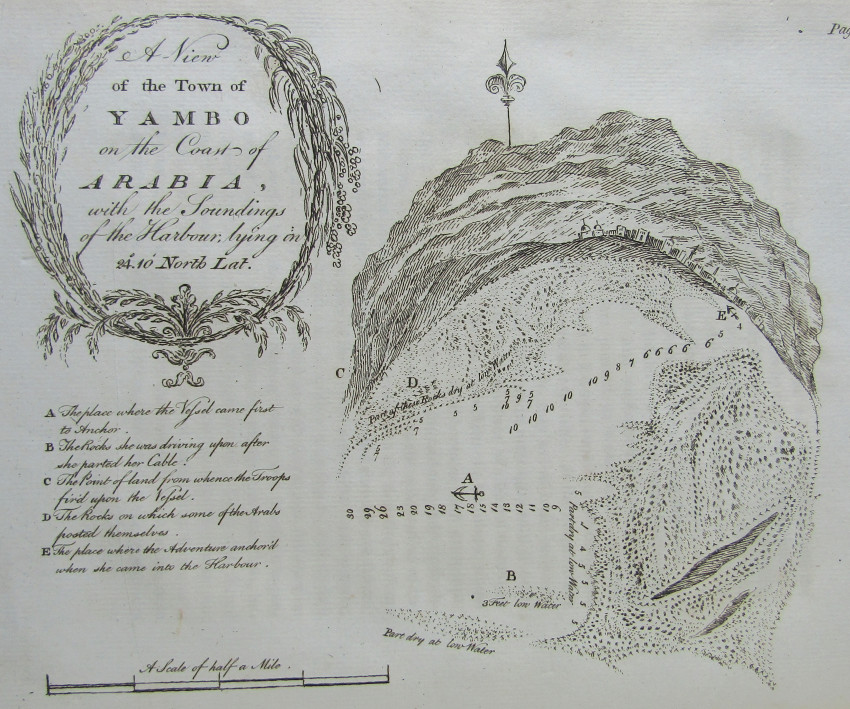 Pag
A View
of the Town of
YAMBO
on the Coast of
ARABIA,
with the Soundings
of the Harbour, lying in
24°.10' North Lat.
A The place where the Vessel came first
to Anchor.
B The Rocks she was driving upon after
she parted her Cable.
C The Point of land from whence the Troops
fir'd upon the Vessel.
D The Rocks on which some of the Arabs
posted themselves.
E The place where the Adventure anchor'd
when she came into the Harbour.
A Scale of half a Mile.
E
4
5
6
6 6 6
7
8
9
10
C
D
Part of these Rocks dry at low Water
5 5 5
7
9 5
7
10
10 10 10 10
A
30 29 26 23 20 19 18 17 18 15 14 13 12 11 10 6
5
Part dry at low Water
5 4 5 5 5 5
B
3 Feet low Water
Part dry at low Water